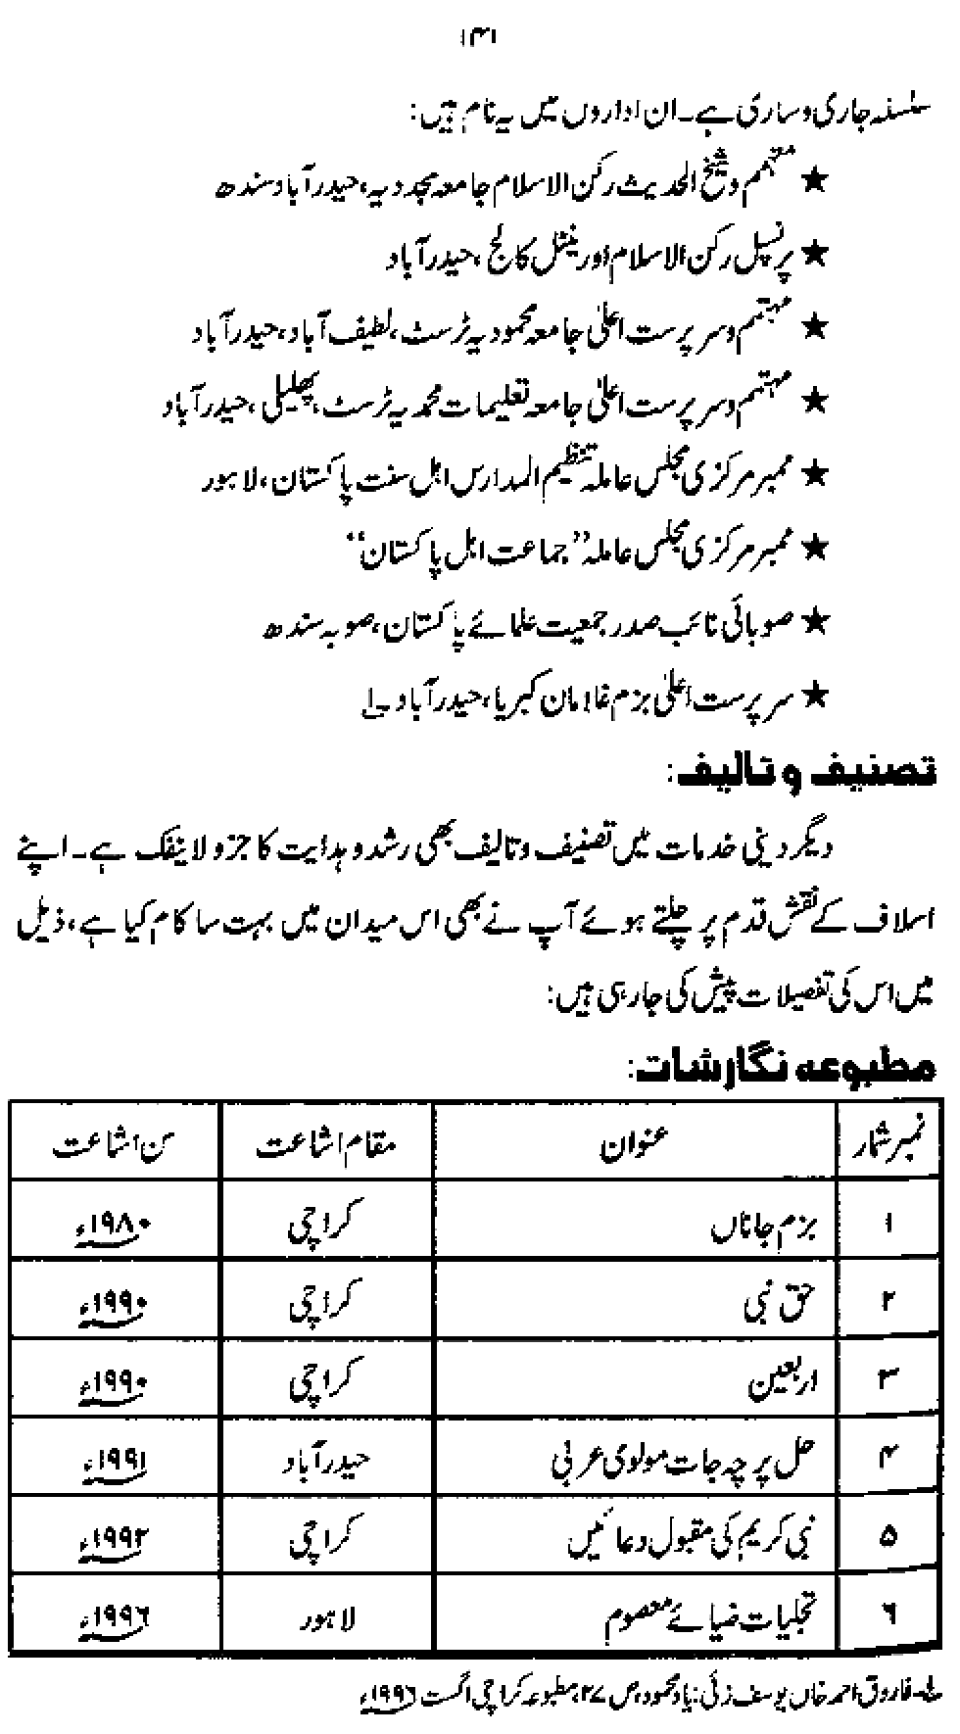 ۱۴۱
سلسلہ جاری وساری ہے۔ان اداروں میں یہ نام ہیں:
★ مہتمم وشیخ الحدیث رکن الاسلام جامعہ مجددیہ،حیدرآباد سندھ
★ پرنسپل رکن الاسلام اورینٹل کالج،حیدرآباد
★ مہتمم وسرپرست اعلیٰ جامعہ محمودیہ ٹرسٹ،لطیف آباد،حیدرآباد
★ مہتمم وسرپرست اعلیٰ جامعہ تعلیمات محمدیہ ٹرسٹ،پھلیلی،حیدرآباد
★ ممبر مرکزی مجلس عاملہ تنظیم المدارس اہل سنت پاکستان،لاہور
★ ممبر مرکزی مجلس عاملہ ”جماعت اہل پاکستان“
★ صوبائی نائب صدر جمعیت علمائے پاکستان،صوبہ سندھ
★ سرپرست اعلیٰ بزم غلامان کبریا،حیدرآباد۔۱
تصنیف و تالیف:
دیگر دینی خدمات میں تصنیف وتالیف بھی رشد وہدایت کا جزو لاینفک ہے۔اپنے
اسلاف کے نقش قدم پر چلتے ہوئے آپ نے بھی اس میدان میں بہت سا کام کیا ہے،ذیل
میں اس کی تفصیلات پیش کی جارہی ہیں:
مطبوعہ نگارشات:
نمبر شمار عنوان مقام اشاعت سن اشاعت
۱ بزم جاناں کراچی ۱۹۸۰ء
۲ حق نبی کراچی ۱۹۹۰ء
۳ اربعین کراچی ۱۹۹۰ء
۴ حل پرچہ جات مولوی عربی حیدرآباد ۱۹۹۱ء
۵ نبی کریم کی مقبول دعائیں کراچی ۱۹۹۲ء
۶ تجلیات ضیائے معصوم لاہور ۱۹۹۶ء
۱۔فاروق احمد خاں یوسف زئی:یاد محمود،ص۲۷،مطبوعہ کراچی اگست ۱۹۹۶ء